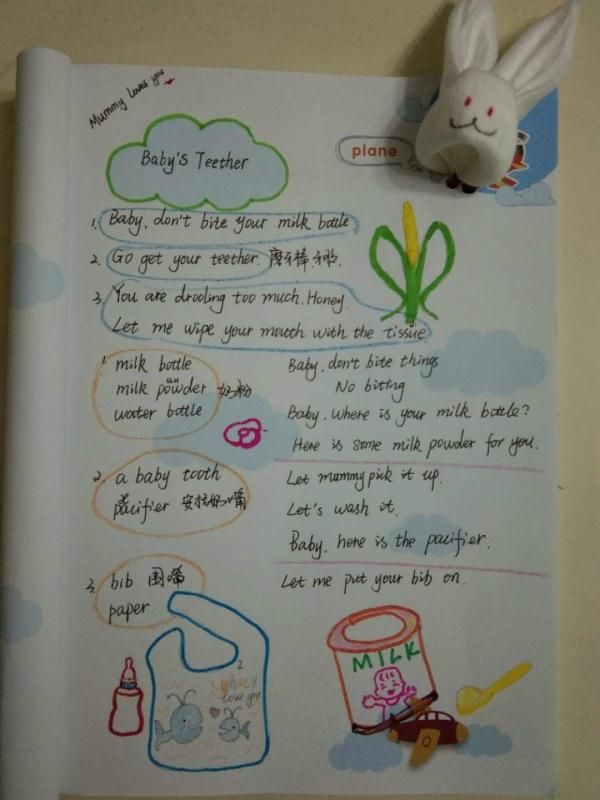 Mummy loves you
Baby's Teether
plane
1. Baby, don't bite your milk bottle
2. Go get your teether. 磨牙棒
3. You are drooling too much. Honey.
Let me wipe your mouth with the tissue
1. milk bottle
milk powder 奶粉
water bottle
Baby, don't bite things
No biting
Baby. Where is your milk bottle?
Here is some milk powder for you.
2. a baby tooth
pacifier 安抚奶嘴
Let mummy pick it up.
Let's wash it.
Baby, here is the pacifier.
3. bib 围嘴
paper
Let me put your bib on.
love you
MILK